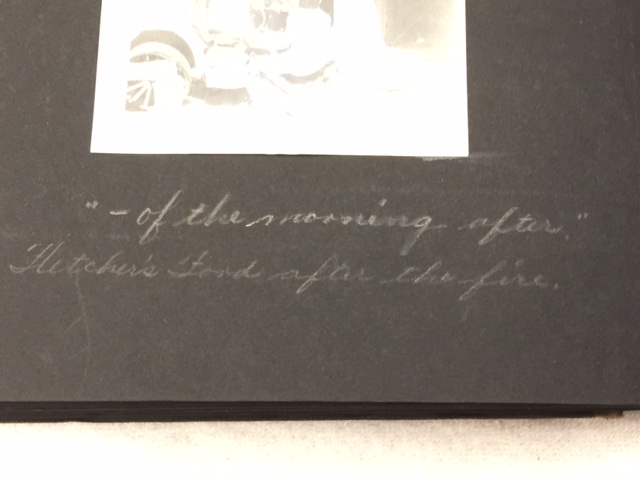 "- of the morning after."
Fletcher's Ford after the fire.